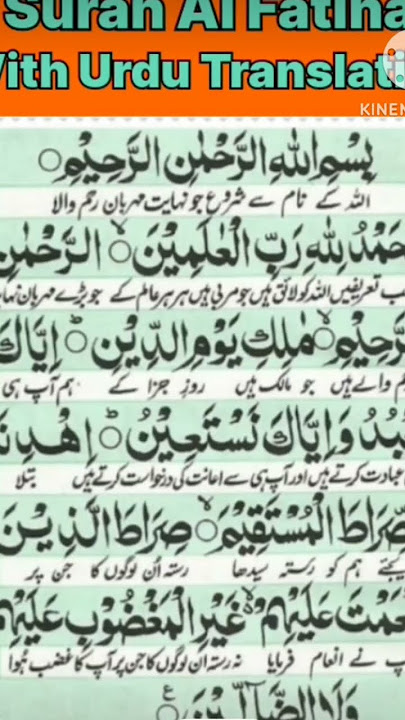 Surah Al Fatiha
With Urdu Translati
KINEM
بِسْمِ اللهِ الرَّحْمٰنِ الرَّحِيْمِ ○
اللہ کے نام سے شروع جو نہایت مہربان رحم والا
حَمْدُ لِلّٰهِ رَبِّ الْعٰلَمِيْنَ ○ الرَّحْمٰنِ
ب تعریفیں اللہ کو لائق ہیں جو مربی ہیں ہر ہر عالم کے جو بڑے مہربان نہا
رَّحِيْمِ ○ مٰلِكِ يَوْمِ الدِّيْنِ ○ اِيَّاكَ
م والے ہیں جو مالک ہیں روزِ جزا کے ہم آپ ہی
بُدُ وَاِيَّاكَ نَسْتَعِيْنُ ○ اِهْدِنَا
عبادت کرتے ہیں اور آپ ہی سے اعانت کی درخواست کرتے ہیں بتلا
صِّرَاطَ الْمُسْتَقِيْمَ ○ صِرَاطَ الَّذِيْنَ
یجئے ہم کو رستہ سیدھا رستہ اُن لوگوں کا جن پر
عَمْتَ عَلَيْهِمْ ○ غَيْرِ الْمَغْضُوْبِ عَلَيْهِمْ
پ نے انعام فرمایا نہ رستہ ان لوگوں کا جن پر آپ کا غضب ہُوا
وَلَا الضَّآلِّيْنَ ○